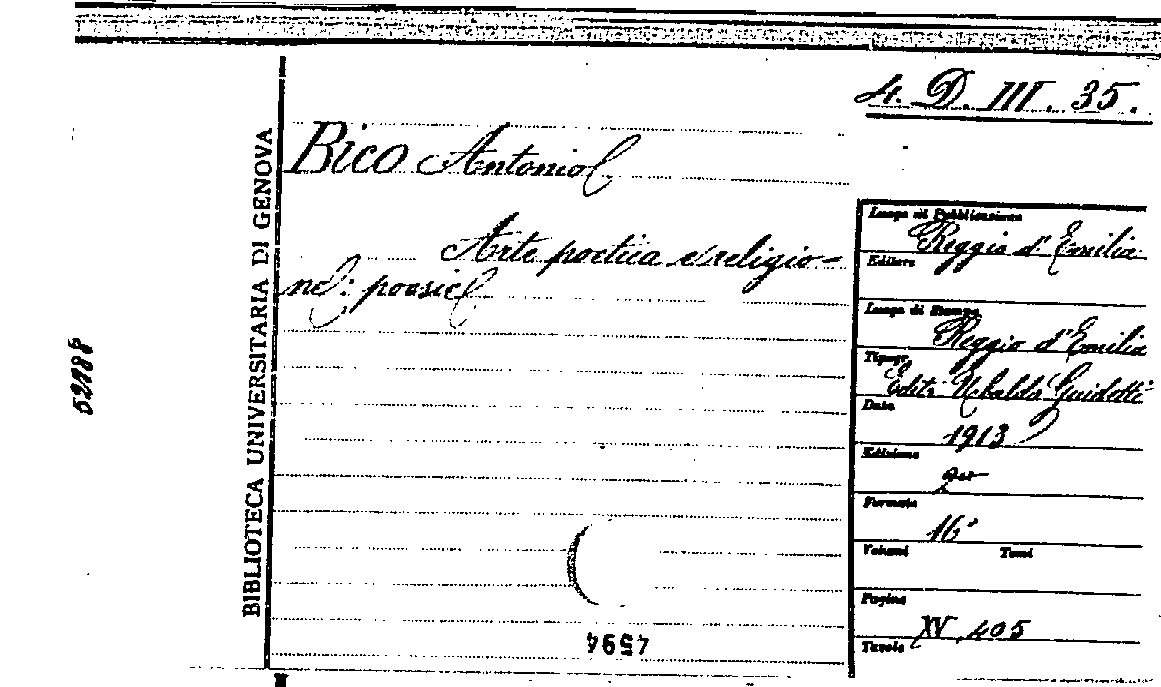 4. D. III. 35.
BIBLIOTECA UNIVERSITARIA DI GENOVA
Bico Antonio
Arte poetica e religio-
ne: poesie
Luogo di Pubblicazione
Reggio d'Emilia
Editore
Luogo di Stampa
Reggio d'Emilia
Tipogr.
Edit: Ubaldo Guidetti
Data
1913
Edizione
2ª
Formato
16°
Volumi Tomi
Pagine
XV, 405
Tavole
4594